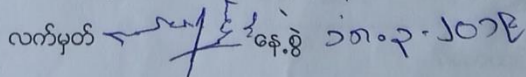 လက်မှတ် နေ့စွဲ ၁၈.၃.၂၀၁၉